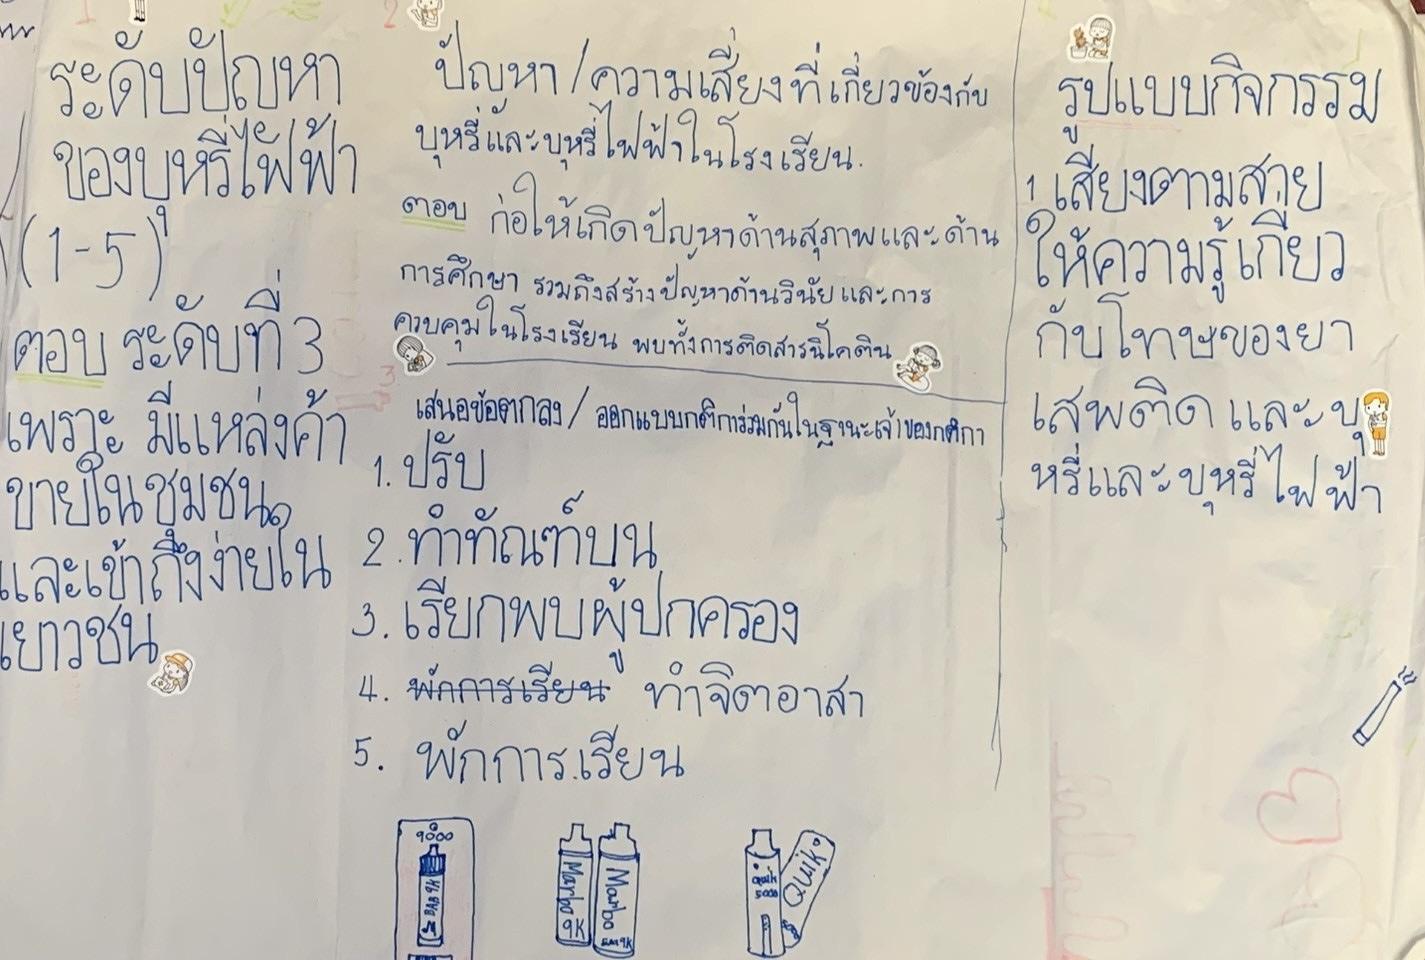 1
ระดับปัญหา
ของบุหรี่ไฟฟ้า
(1-5)
ตอบ ระดับที่ 3
เพราะ มีแหล่งค้า
ขายในชุมชน
และเข้าถึงง่ายใน
เยาวชน
2
ปัญหา/ความเสี่ยงที่เกี่ยวข้องกับ
บุหรี่และบุหรี่ไฟฟ้าในโรงเรียน.
ตอบ ก่อให้เกิดปัญหาด้านสุภาพและด้าน
การศึกษา รวมถึงสร้างปัญหาด้านวินัยและการ
ควบคุมในโรงเรียน พบทั้งการติดสารนิโคติน
3
เสนอข้อตกลง/ออกแบบกติการ่วมกันในฐานะเจ้าของกติกา
1. ปรับ
2. ทำทัณฑ์บน
3. เรียกพบผู้ปกครอง
4. พักการเรียน ทำจิตอาสา
5. พักการเรียน
9000
Marbo
9K
Marbo
9K
Quik
5000
Quik
รูปแบบกิจกรรม
1 เสียงตามสาย
ให้ความรู้เกี่ยว
กับโทษของยา
เสพติด และ บุ
หรี่และบุหรี่ไฟฟ้า